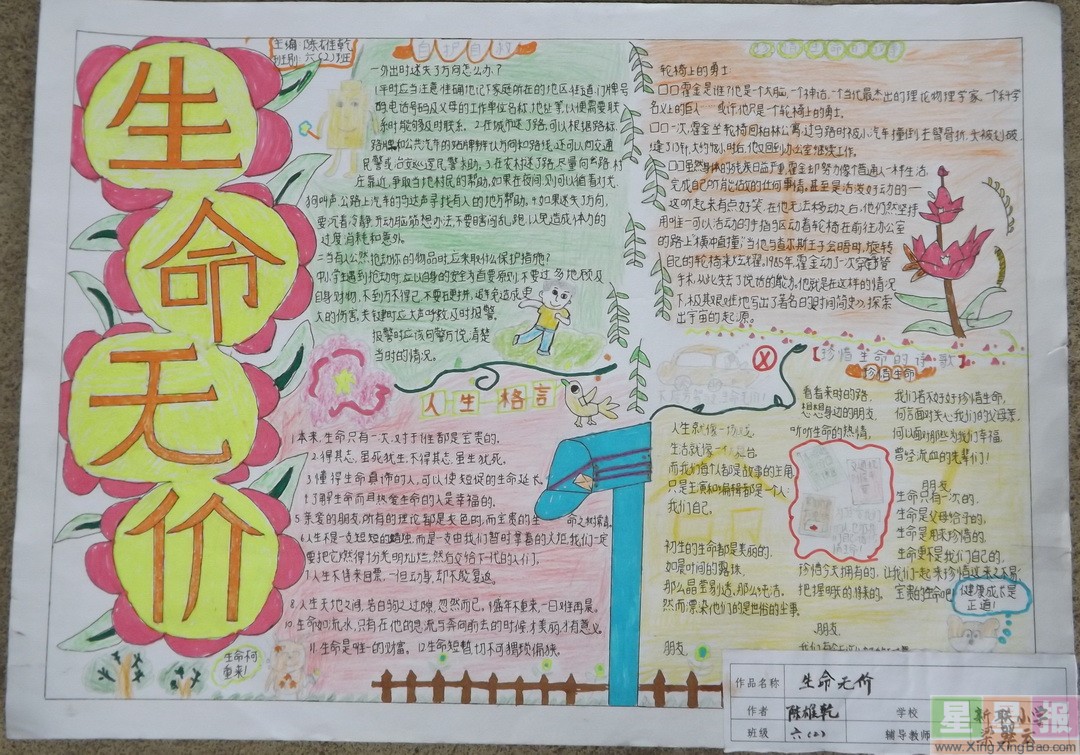 生命无价
主编 陈雄乾
班别 六(2)班
自护自
一.外出时迷失了方向怎么办?
1.平时应当注意准确地记下家庭所在的地区、街道、门牌号
码、电话号码及父母的工作单位名称、地址等,以便需要联
系时能够及时联系。2.在城市迷了路,可以根据路标、
路牌和公共汽车的站牌辨认方向和路线,还可以向交通
民警或治安巡逻民警求助。3.在农村迷了路,尽量向公路、村
庄靠近,争取当地村民的帮助。如果在夜间,则可以循着灯光、
狗叫声、公路上汽车的马达声寻找有人的地方帮助。4.如果迷失了方向,
要沉着冷静,开动脑筋想办法,不要瞎闯乱跑,以免造成体力的
过度消耗和意外。
二.当有人公然抢动你的物品时,应采取什么保护措施?
中小学生遇到抢动时,应以自身的安全考虑要原则,不要过多地顾及
自身财物,不到万不得已,不要硬拼,避免造成更
大的伤害,关键时应大声呼救,及时报警。
报警时应该向警方说清楚
当时的情况。
轮椅上的勇士
霍金是谁?他是一个大脑,一个神话,一个当代最杰出的理论物理学家,一个科学
名义上的巨人……或许,他只是一个轮椅上的勇士。
一次,霍金坐轮椅回柏林公寓,过马路时被小汽车撞倒,左臂骨折,头被划破,
缝了13针,大约48小时后,他又回到办公室继续工作。
虽然身体的残疾日益严重,霍金却努力像普通人一样生活,
完成自己所能做的任何事情。甚至是活泼好动的——
这听起来有点好笑,在他无法移动之后,他仍然坚持
用唯一可以活动的手指驱动着轮椅在前往办公室
的路上“横冲直撞”;当他与查尔斯王子会晤时,旋转
自己的轮椅来炫耀,1985年,霍金动了一次穿气管
手术,从此失去了说话的能力,他就是在这样的情况
下,极其艰难地写出了著名《时间简史》,探索
出宇宙的起源。
人生格言
1.本来,生命只有一次,对于谁都是宝贵的。
2.得其志,虽死犹生,不得其志,虽生犹死。
3.懂得生命真谛的人,可以使短促的生命延长。
4.了解生命而且热爱生命的人是幸福的。
5.亲爱的朋友,所有的理论都是灰色的,而宝贵的生命之树常青。
6.人生不是一支短短的蜡烛,而是一支由我们暂时拿着的火炬,我们一定
要把它燃得十分光明灿烂,然后交给下一代的人们,
7.人生不售来回票,一但动身,却不能复返。
8.人生天地之间,若白驹之过隙,忽然而已。9.盛年不重来,一日难再晨。
10.生命如流水,只有在他的急流与奔向前去的时候,才美丽,才有意义。
11.生命是唯一的财富。12.生命短暂,切不可猥琐偏狭。
【珍惜生命的诗歌】
珍惜生命
人生就像一场戏,
生活就像一个舞台
而我们每个人都是故事的主角,
只是主演和编辑都是一个人:
我们自己。
初生的生命都是美丽的.
如晨时间的露珠.
那么晶莹剔透,那么纯洁,
然而漂染他们的是世俗的尘事.
朋友,
看看来时的路.
想想身边的朋友.
听听生命的热情,
珍惜今天拥有的,
把握明天的将来的,
朋友.
我们有
我们若不好好珍惜生命,
何言面对关心我们的父母等,
何以面对那些为我们幸福.
曾经流血的先辈们!
朋友.
生命只有一次的.
生命是父母给予的,
生命是用来珍惜的.
生命更不是我们自己的.
让我们一起来珍惜
宝贵的生命吧!
健康成长是
正道!
生命何
重来!
作品名称 生命无价
作者 陈雄乾 学校 新联小学
班级 六(2) 辅导教师 梁翠云
星星报
www.XingXingBao.com